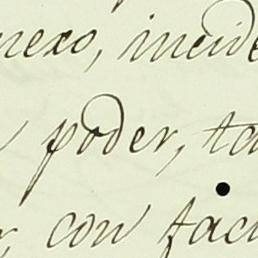 nexo, incide
poder, ta
con fac